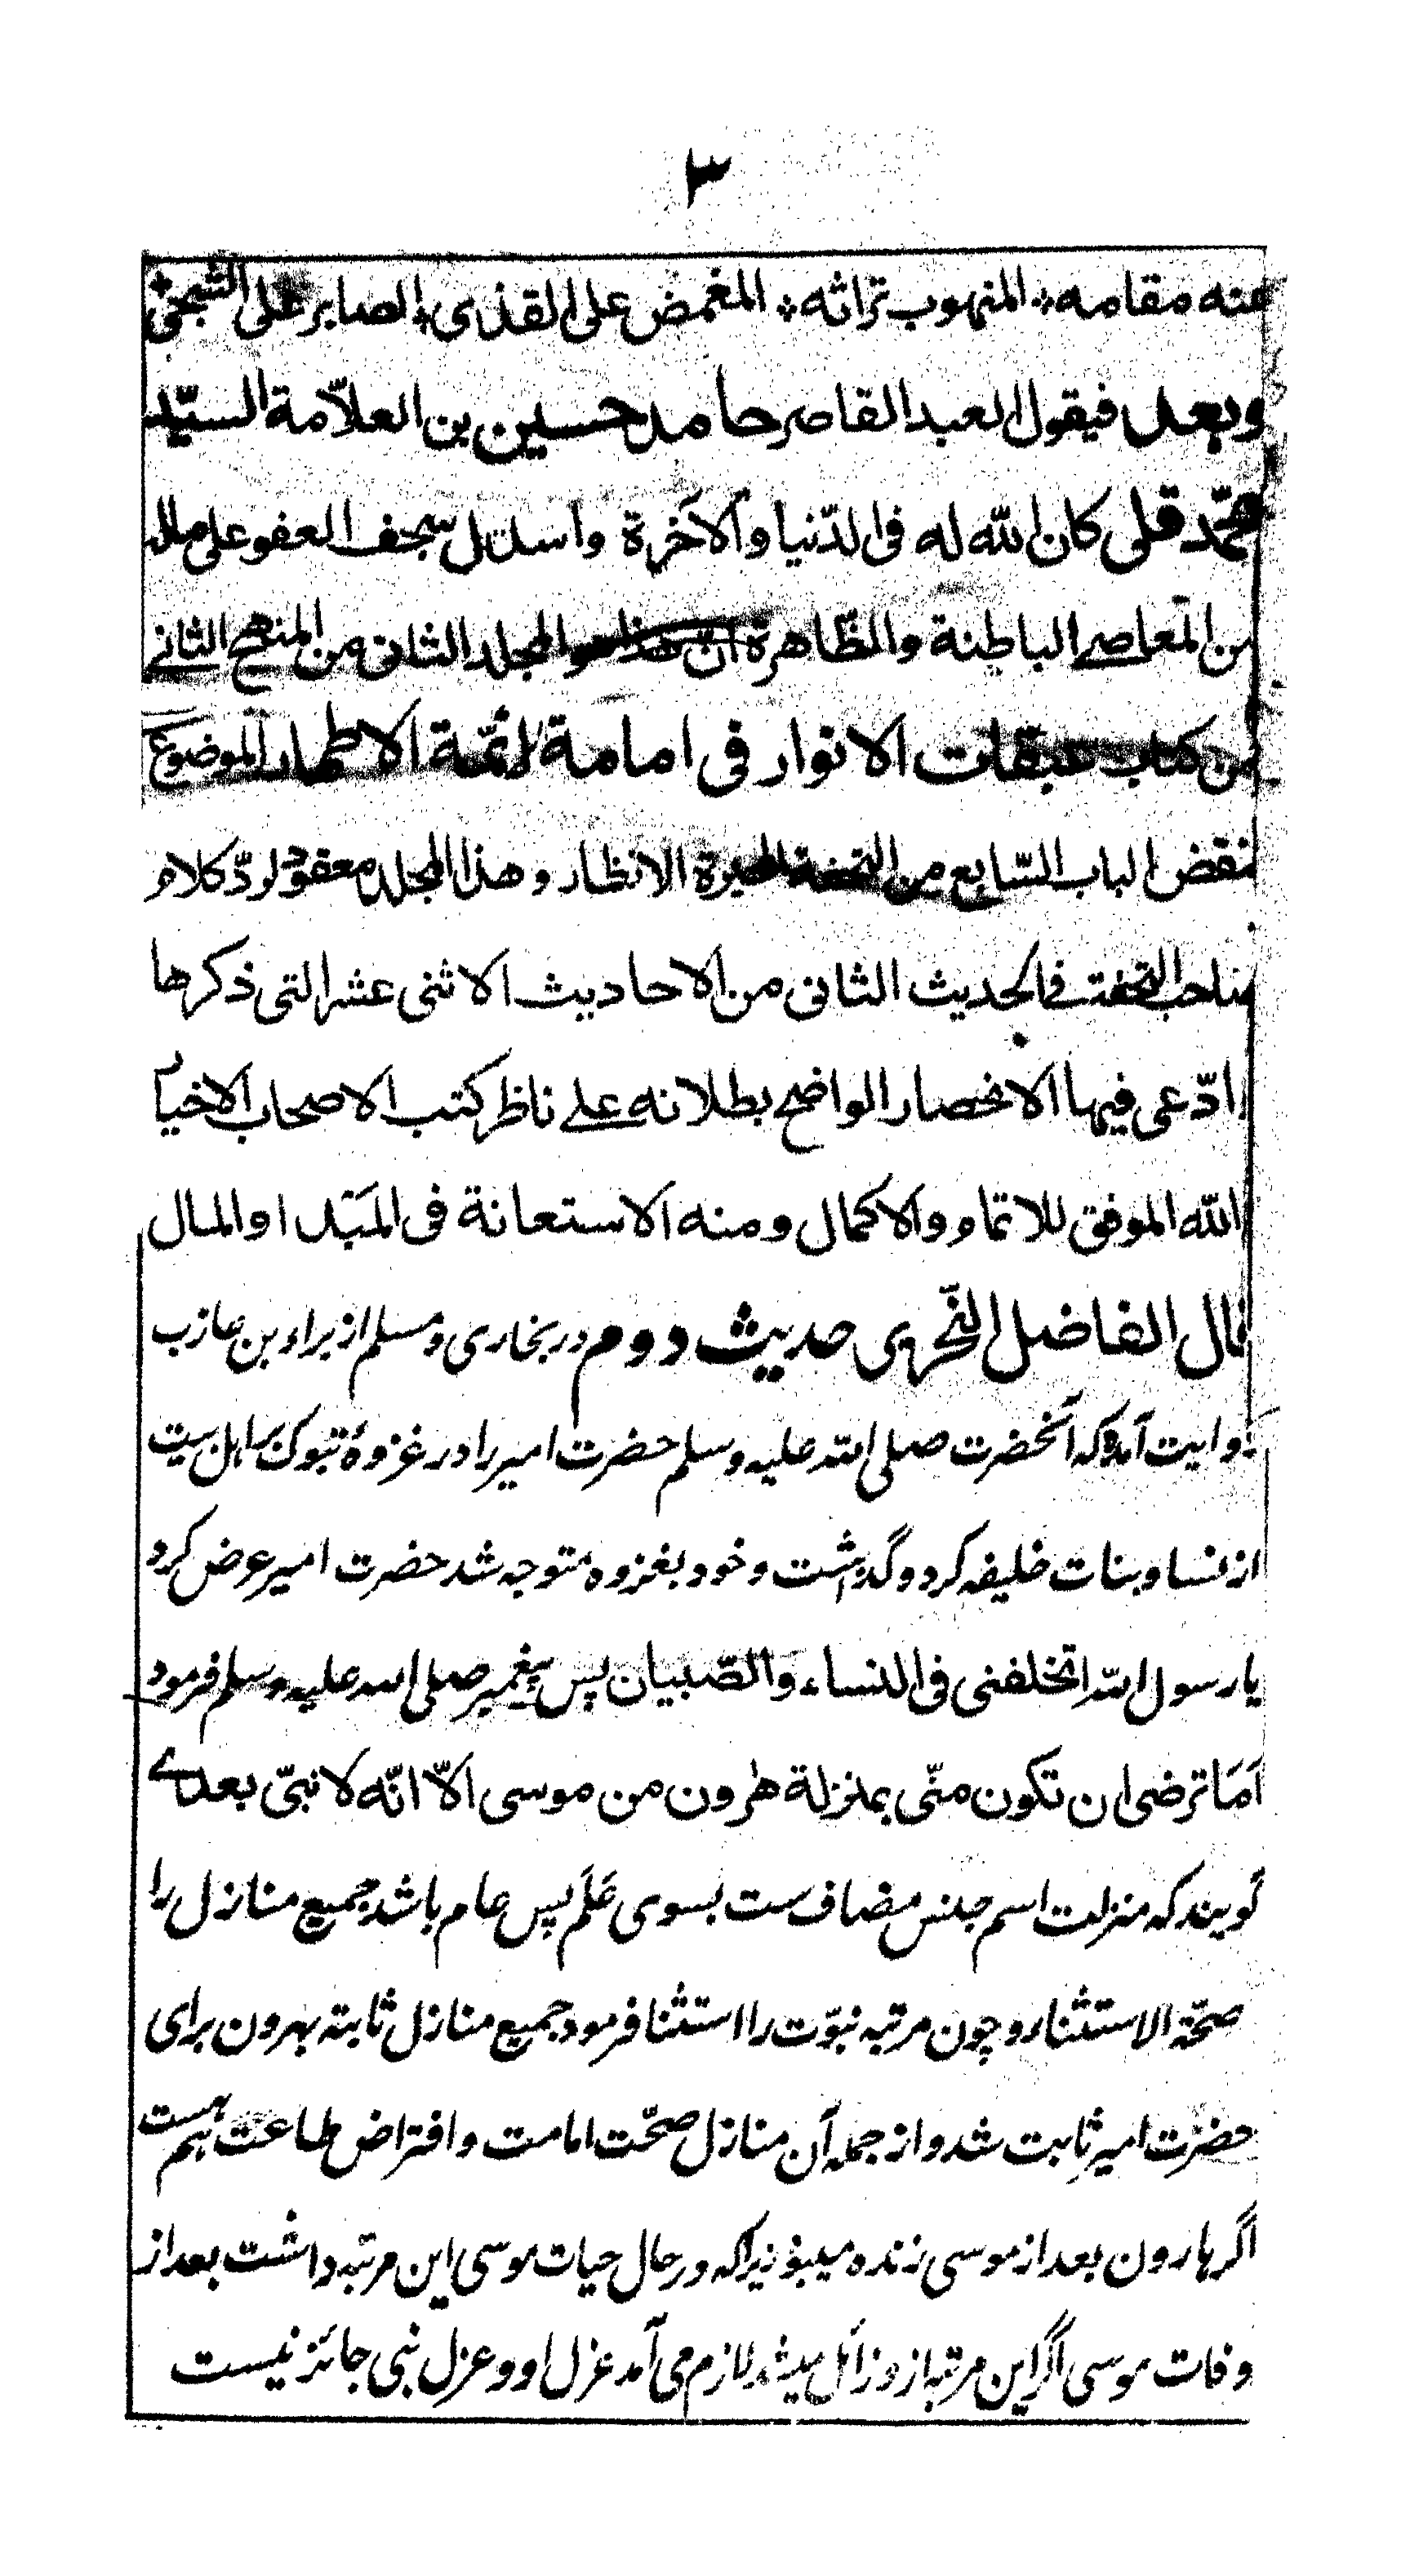 ۳
عنه مقامه ؞ المنهوب تراثه ؞ المغمض على القذى ؞ الصابر على الشجى ؞
وبعد فيقول العبد القاصر حامد حسين بن العلّامة السيّد
محمّد قلى كان اللّه له فى الدّنيا والآخرة واسدل سجف العفو على ماله
من المعاصے الباطنة والظّاهرة انّ هذا هو المجلد الثانى من المنهج الثانے
من كتاب عبقات الانوار فى امامة الائمّة الاطهار الموضوع
لنقض الباب السّابع من التحفة المحيرة الانظار وهذا المجلد معقود لردّ كلام
صاحب التحفة فى الحديث الثانى من الاحاديث الاثنى عشر التى ذكرها
وادّعى فيها الانحصار الواضح بطلانه علے ناظر كتب الاصحاب الاخيار
واللّه الموفق للاتمام والاكمال ومنه الاستعانة فى المبدا والمال
قال الفاضل النّحرير حديث دوم در بخاری و مسلم از براء بن عازب
روایت آمده که آنحضرت صلی اللّه علیه وسلم حضرت امیر را در غزوهٔ تبوک بر اہل بیت
از نسا و بنات خلیفه کرد و گذاشت و خود بغزوه متوجه شد حضرت امیر عرض کرد
یا رسول اللّه اتخلفنى فى النساء والصّبيان پس پیغمبر صلی اللّه علیه وسلم فرمود
اَمَا ترضى ان تكون منّى بمنزلة هٰرون من موسى الّا انّه لا نبىّ بعدے
گویند که منزلت اسم جنس مضاف ست بسوی عَلَم پس عام باشد جمیع منازل را
لصحّة الاستثناء و چون مرتبه نبوّت را استثنا فرمود جمیع منازل ثابته بهرون برای
حضرت امیر ثابت شد و از جمله آن منازل صحّت امامت و افتراض طاعت ہم ہست
اگر ہارون بعد از موسی زنده میبود زیرا که در حال حیات موسی این مرتبه داشت بعد از
وفات موسی اگر این مرتبه از و زائل میشد لازم می آمد عزل او و عزل نبی جائز نیست